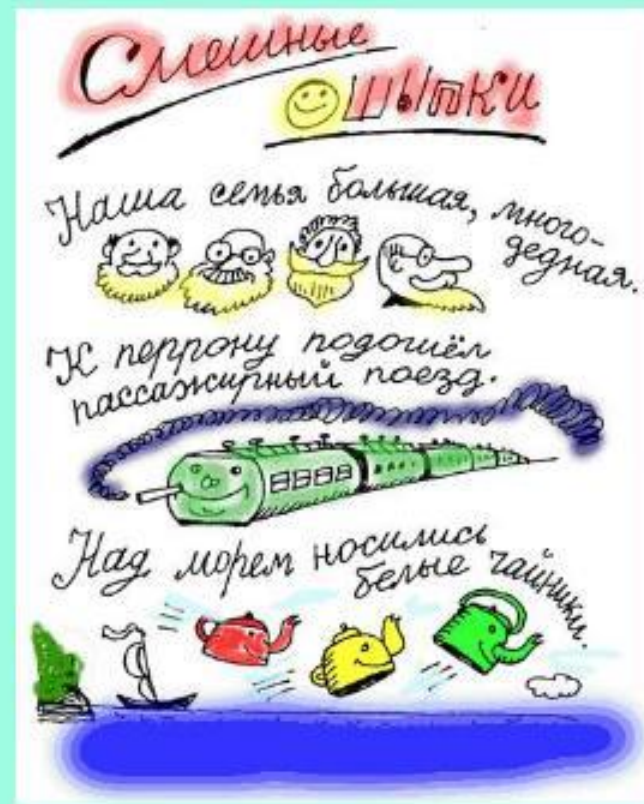 Смешные
ошыпки
Наша семья большая, много-
дедная.
К перрону подошёл
пассажирный поезд.
Над морем носились
белые чайники.